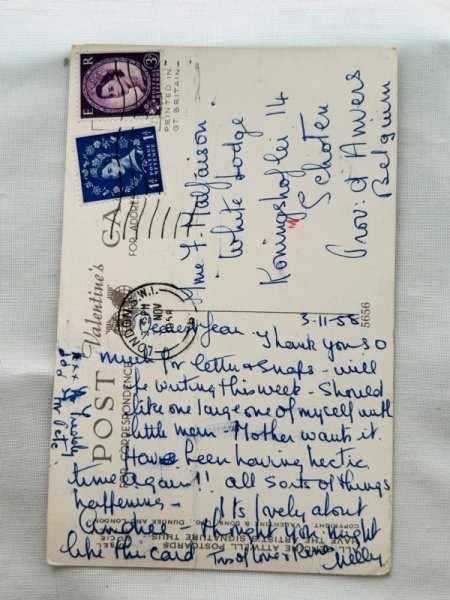 E R
3D
POSTAGE REVENUE
1D
POSTAGE REVENUE
PRINTED IN
GT. BRITAIN
POST CA
Valentine's
FOR CORRESPONDENCE
FOR ADDRESS
LONDON S.W.1.
PM
NOV
1958
Mme F. Malfaison.
White Lodge
Koningshoflei 14
Schoten
Prov: d'Anvers
Belgium
5656
3-11-58
Dearest Jean Thank you so
much for letter & snaps - will
be writing this week - Should
like one large one of myself with
little man. Mother wants it.
Have been having hectic
time again!! all sorts of things
happening - It's lovely about
thought you might
like this card Tons of love
xxx
for Pete.
ALL GENUINE ATTWELL POSTCARDS
HAVE THE ARTIST'S SIGNATURE THUS:
COPYRIGHT. VALENTINE & SONS, LTD. DUNDEE AND LONDON